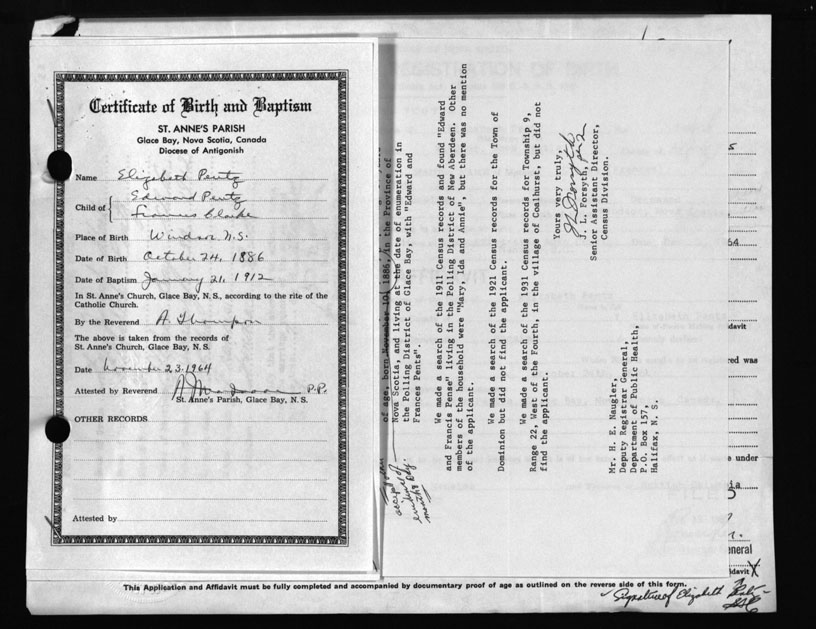 Certificate of Birth and Baptism
ST. ANNE'S PARISH
Glace Bay, Nova Scotia, Canada
Diocese of Antigonish
Name Elizabeth Pentz
Child of { Edward Pentz
Frances Clarke
Place of Birth Windsor N.S.
Date of Birth October 24, 1886
Date of Baptism January 21, 1912
In St. Anne's Church, Glace Bay, N. S., according to the rite of the
Catholic Church.
By the Reverend A Thompson
The above is taken from the records of
St. Anne's Church, Glace Bay, N. S.
Date November 23, 1964
Attested by Reverend P.P.
St. Anne's Parish, Glace Bay, N. S.
OTHER RECORDS
Attested by
of age, born November 10, 1886, in the Province of
Nova Scotia, and living at the date of enumeration in
the Polling District of Glace Bay, with "Edward and
Frances Pents"
We made a search of the 1911 Census records and found "Edward
and Francis Pense" living in the Polling District of New Aberdeen. Other
members of the household were "Mary, Ida and Annie", but there was no mention
of the applicant.
We made a search of the 1921 Census records for the Town of
Dominion but did not find the applicant.
We made a search of the 1931 Census records for Township 9,
Range 22, West of the Fourth, in the village of Coalhurst, but did not
find the applicant.
Yours very truly,
J. L. Forsyth,
Senior Assistant Director,
Census Division.
Mr. H. E. Naugler,
Deputy Registrar General,
Department of Public Health,
P.O. Box 157,
Halifax, N. S.
REGISTRATION OF BIRTH
64
davit
ed was
e under
ia
eneral
davit X
This Application and Affidavit must be fully completed and accompanied by documentary proof of age as outlined on the reverse side of this form.
Signature of Elizabeth